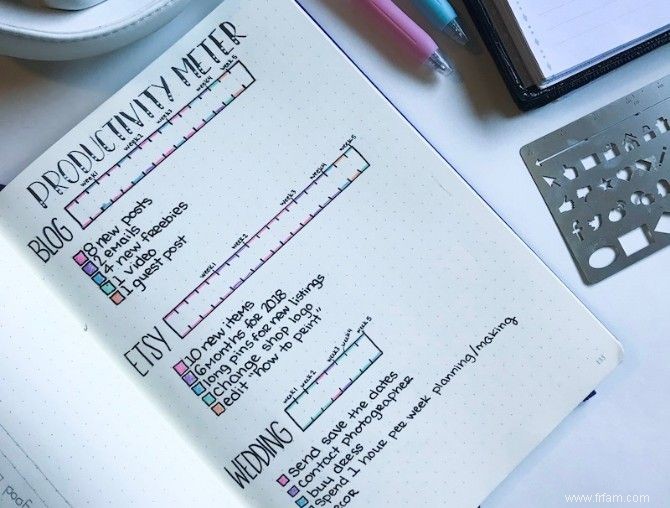 PRODUCTIVITY METER
BLOG
week 1
week 2
week 3
week 4
week 5
8 new posts
2 emails
4 new freebies
1 video
1 guest post
ETSY
week 1
week 2
week 3
week 4
week 5
10 new items
6 months for 2018
long pins for new listings
change shop logo
edit "how to print"
WEDDING
week 1
week 2
week 3
week 4
week 5
send save the dates
contact photographer
buy dress
spend 1 hour per week planning/making
www.frfam.com